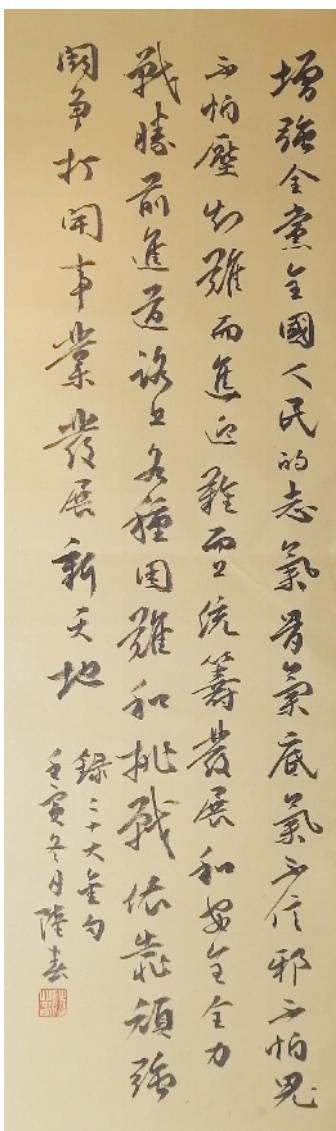 增強全黨全國人民的志氣骨氣底氣不信邪不怕鬼
不怕壓知難而進迎難而上統籌發展和安全全力
戰勝前進道路上各種困難和挑戰依靠頑強
鬪爭打開事業發展新天地
錄二十大金句
壬寅冬月陸春